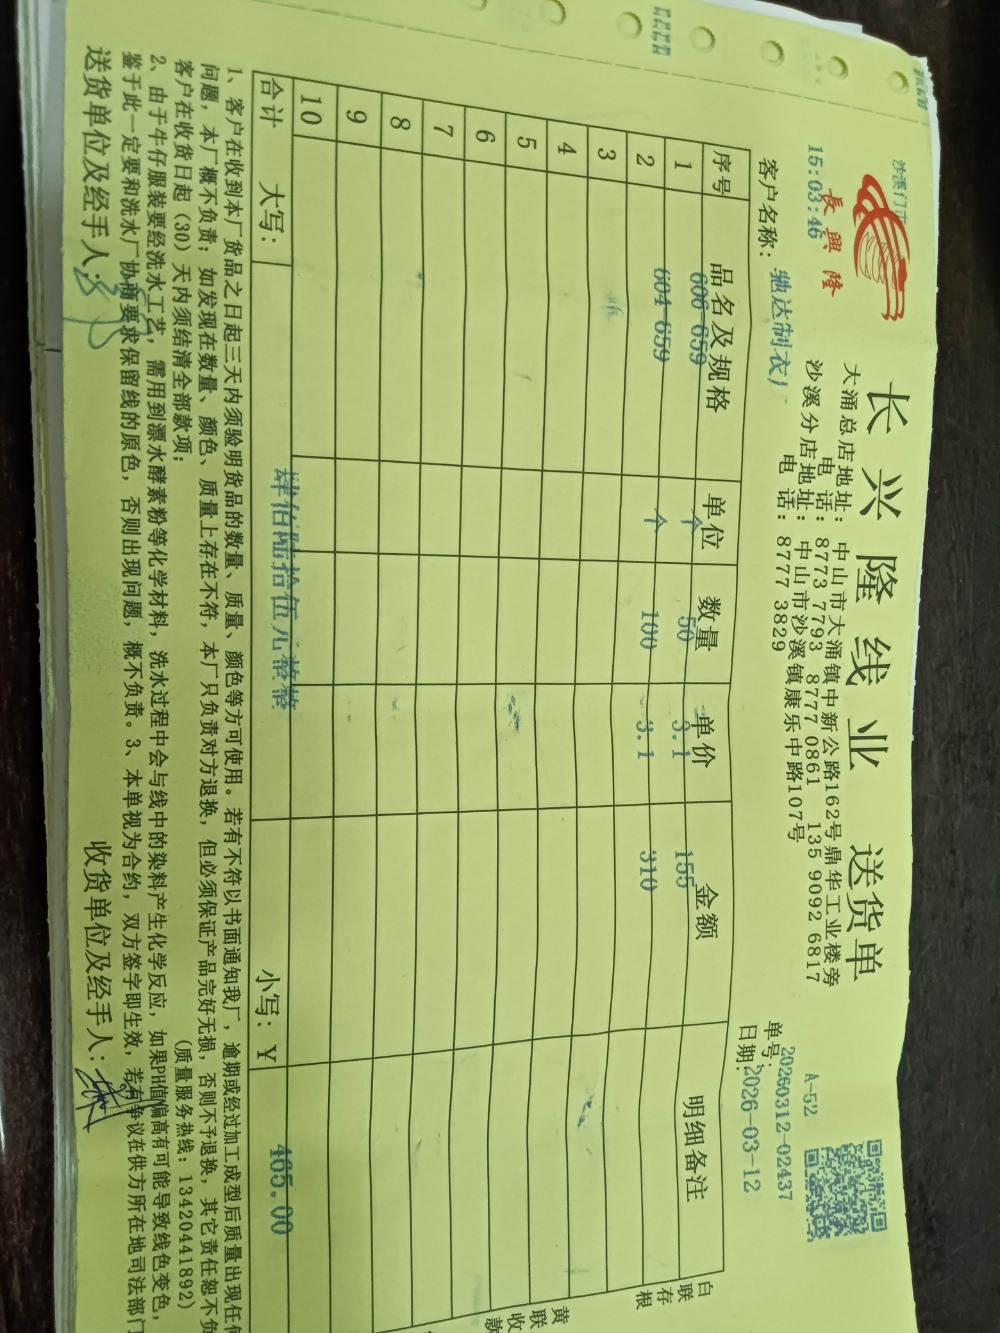 沙溪门市
15:03:46
長興隆
长兴隆线业 送货单
大涌总店地址:中山市大涌镇中新公路162号鼎华工业楼旁
电 话:8773 7793 8777 0861 135 9092 6817
沙溪分店地址:中山市沙溪镇康乐中路107号
电 话:8777 3829
A-52
单号:20260312-02437
日期:2026-03-12
客户名称:驰达制衣厂
序号 品名及规格 单位 数量 单价 金额 明细备注
1 606-659 个 50 3.1 155
2 604-659 个 100 3.1 310
3
4
5
6
7
8
9
10
合计 大写: 肆佰陆拾伍元整 小写:¥ 465.00
白联存根
黄联收款
1、客户在收到本厂货品之日起三天内须验明货品的数量、质量、颜色等方可使用。若有不符以书面通知我厂,逾期或经过加工成型后质量出现任何
问题,本厂概不负责;如发现在数量、颜色、质量上存在不符,本厂只负责对方退换,但必须保证产品完好无损,否则不予退换,其它责任恕不负
客户在收货日起(30)天内须结清全部款项; (质量服务热线:13420441892)
2、由于牛仔服装要经洗水工艺,需用到漂水酵素粉等化学材料,洗水过程中会与线中的染料产生化学反应,如果PH值偏高有可能导致线色变色,
鉴于此一定要和洗水厂协商要求保留线的原色,否则出现问题,概不负责。3、本单视为合约,双方签字即生效,若有争议在供方所在地司法部门
送货单位及经手人: 收货单位及经手人: